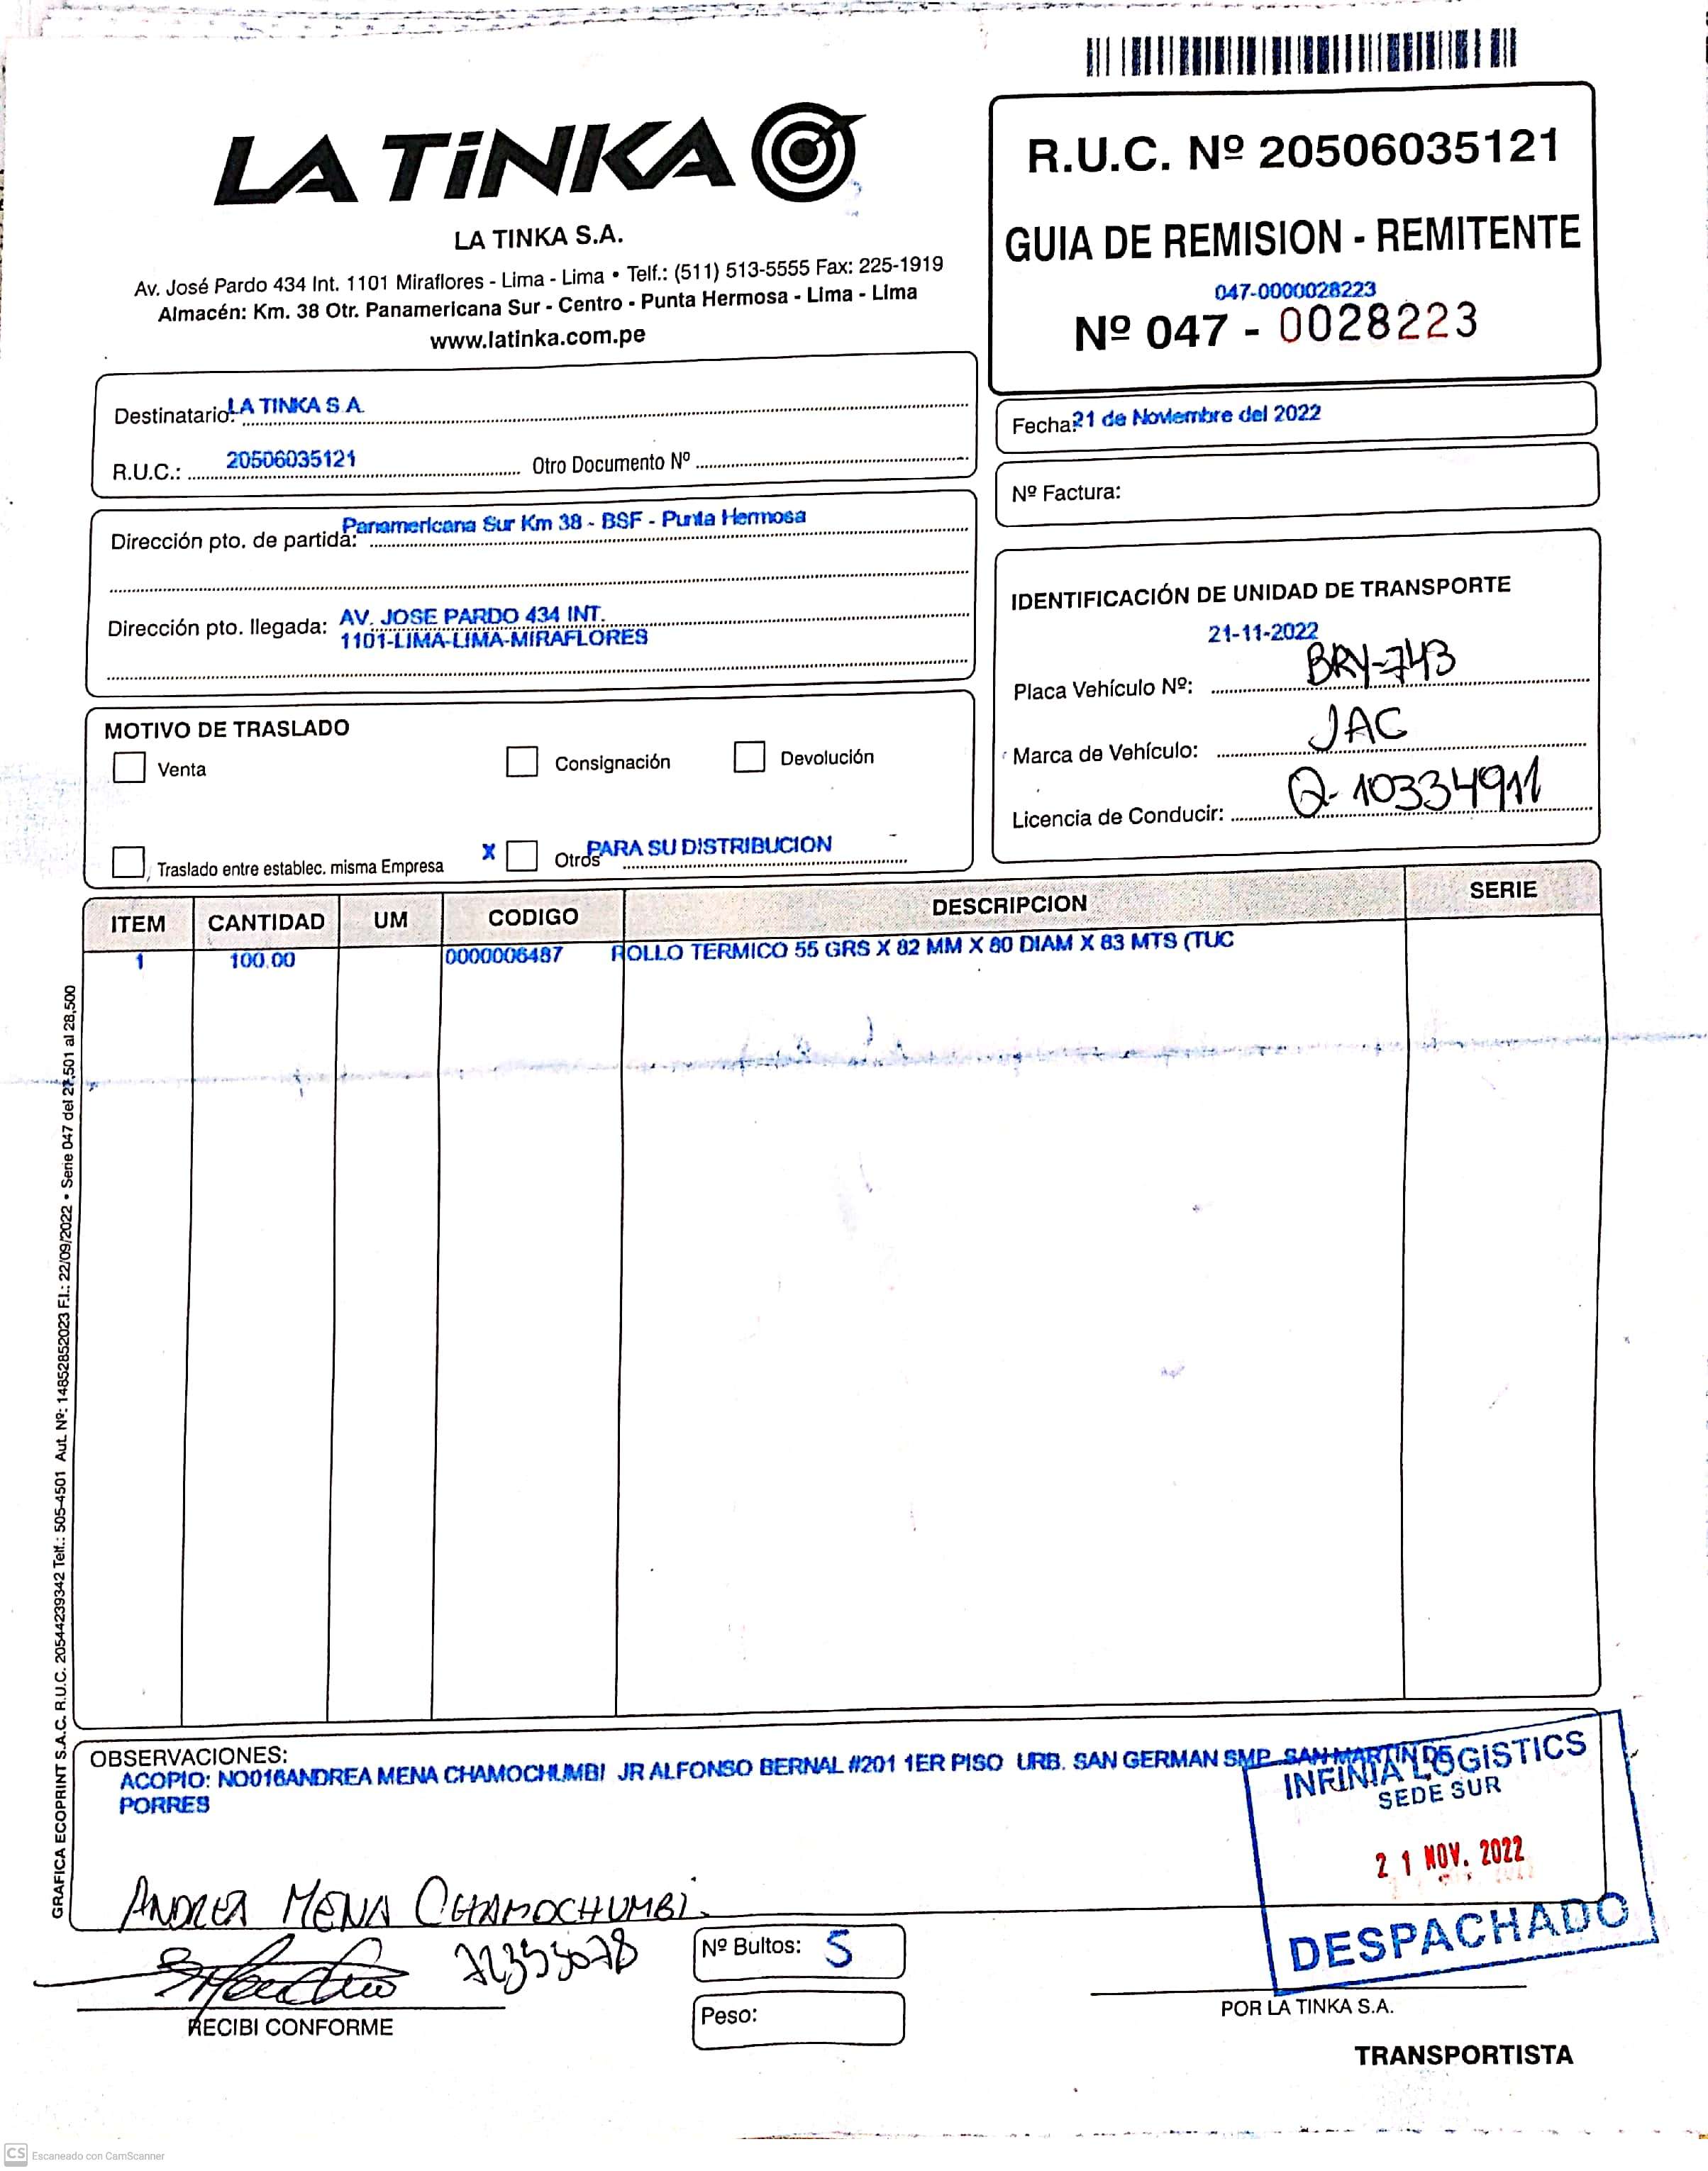 LA TiNKA
LA TINKA S.A.
Av. José Pardo 434 Int. 1101 Miraflores - Lima - Lima • Telf.: (511) 513-5555 Fax: 225-1919
Almacén: Km. 38 Otr. Panamericana Sur - Centro - Punta Hermosa - Lima - Lima
www.latinka.com.pe
R.U.C. Nº 20506035121
GUIA DE REMISION - REMITENTE
047-0000028223
Nº 047 - 0028223
Destinatario: LA TINKA S A.
R.U.C.: 20506035121 Otro Documento Nº
Fecha: 21 de Noviembre del 2022
Nº Factura:
Dirección pto. de partida: Panamericana Sur Km 38 - BSF - Punta Hermosa
Dirección pto. llegada: AV. JOSE PARDO 434 INT.
1101-LIMA-LIMA-MIRAFLORES
IDENTIFICACIÓN DE UNIDAD DE TRANSPORTE
21-11-2022
Placa Vehículo Nº: BRY-743
Marca de Vehículo: JAC
Licencia de Conducir: Q-10334911
MOTIVO DE TRASLADO
Venta Consignación Devolución
Traslado entre establec. misma Empresa X Otros PARA SU DISTRIBUCION
ITEM CANTIDAD UM CODIGO DESCRIPCION SERIE
1 100.00 0000006487 ROLLO TERMICO 55 GRS X 82 MM X 80 DIAM X 83 MTS (TUC
GRAFICA ECOPRINT S.A.C. R.U.C. 20544239342 Telf.: 505-4501 Aut. Nº: 14852852023 F.I.: 22/09/2022 • Serie 047 del 27,501 al 28,500
OBSERVACIONES:
ACOPIO: NO016ANDREA MENA CHAMOCHUMBI JR ALFONSO BERNAL #201 1ER PISO URB. SAN GERMAN SMP SAN MARTIN DE
PORRES
INFINIA LOGISTICS
SEDE SUR
21 NOV. 2022
DESPACHADO
ANDREA MENA CHAMOCHUMBI.
72353078
RECIBI CONFORME
Nº Bultos: 5
Peso:
POR LA TINKA S.A.
TRANSPORTISTA
CS Escaneado con CamScanner